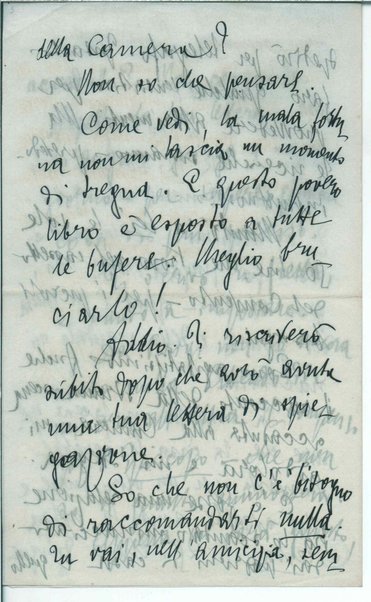 della Camera?
Non so che pensare.
Come vedi, la mala fortu
na non mi lascia un momento
di tregua. E questo povero
libro è esposto a tutte
le bufere. Meglio bru
ciarlo!
Addio. Ti riscriverò
subito dopo che avrò avuta
una tua lettera di spie
gazione.
So che non c'è bisogno
di raccomandarti nulla.
Tu vai, nell'amicizia, sem